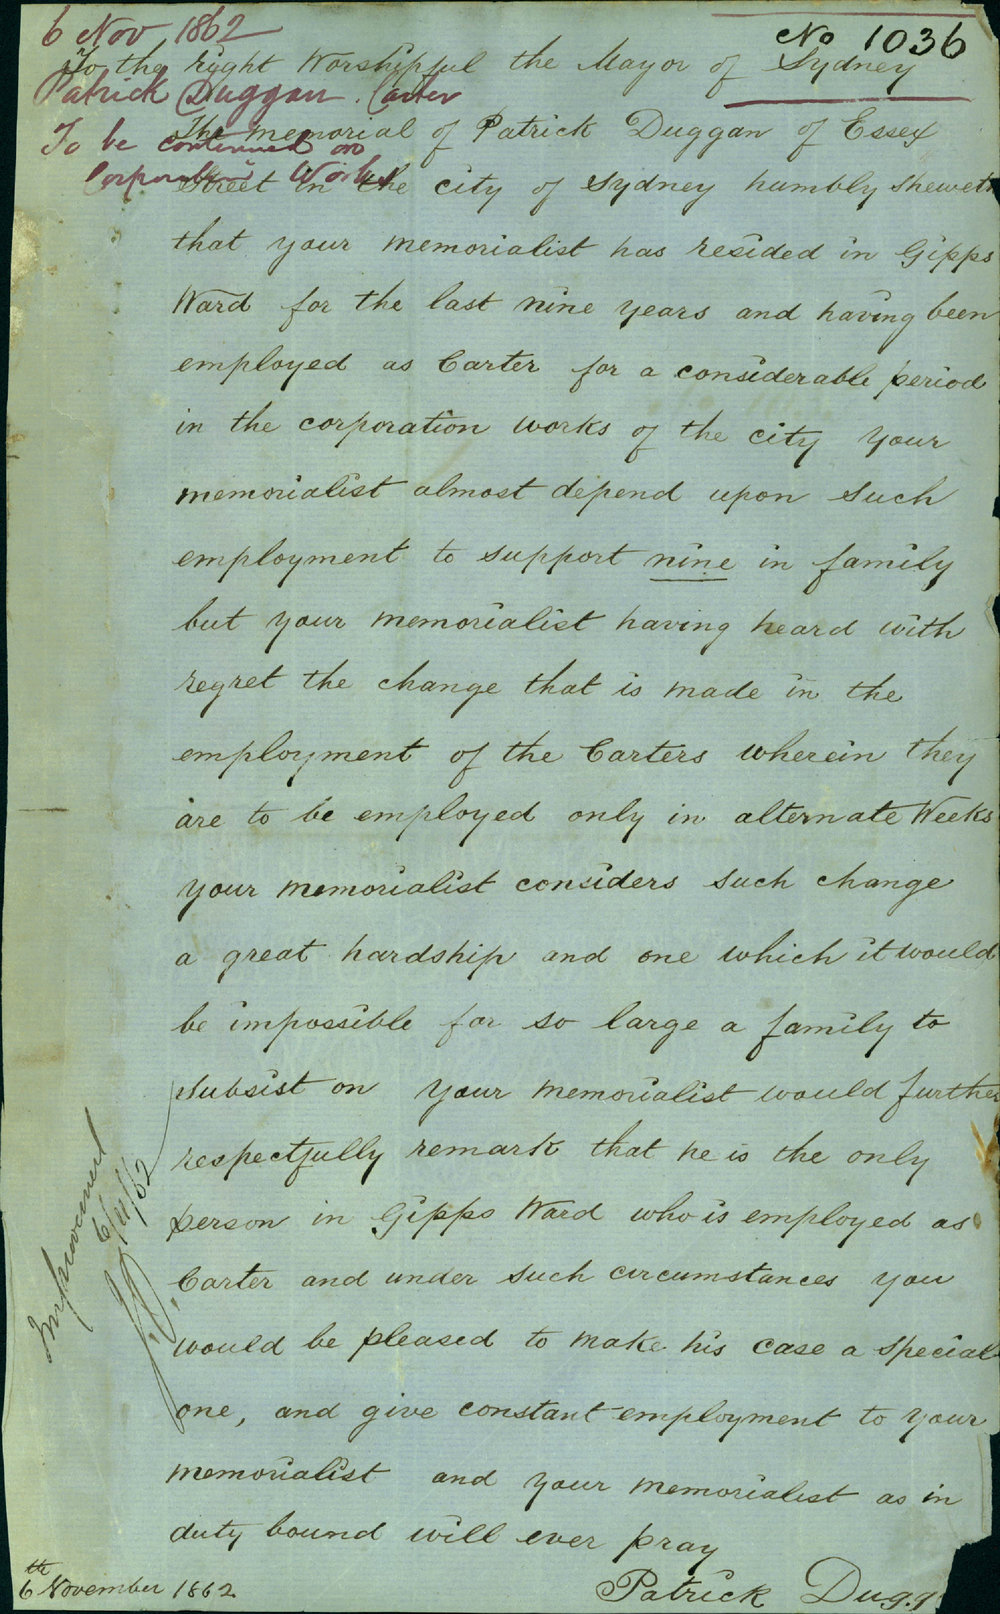 6 Nov 1862
No 1036
To the right Worshipful the Mayor of Sydney
Patrick Duggan Carter
The memorial of Patrick Duggan of Essex
To be continued on
Corporation Works
Street in the city of Sydney humbly sheweth
that your memorialist has resided in Gipps
Ward for the last nine years and having been
employed as Carter for a considerable period
in the corporation works of the city your
memorialist almost depend upon such
employment to support nine in family
but your memorialist having heard with
regret the change that is made in the
employment of the Carters wherein they
are to be employed only in alternate Weeks
your memorialist considers such change
a great hardship and one which it would
be impossible for so large a family to
subsist on your memorialist would further
respectfully remark that he is the only
person in Gipps Ward who is employed as
Carter and under such circumstances you
would be pleased to make his case a special
one, and give constant employment to your
memorialist and your memorialist as in
duty bound will ever pray
Patrick Dugg
6th November 1862
Improvement
6/11/62